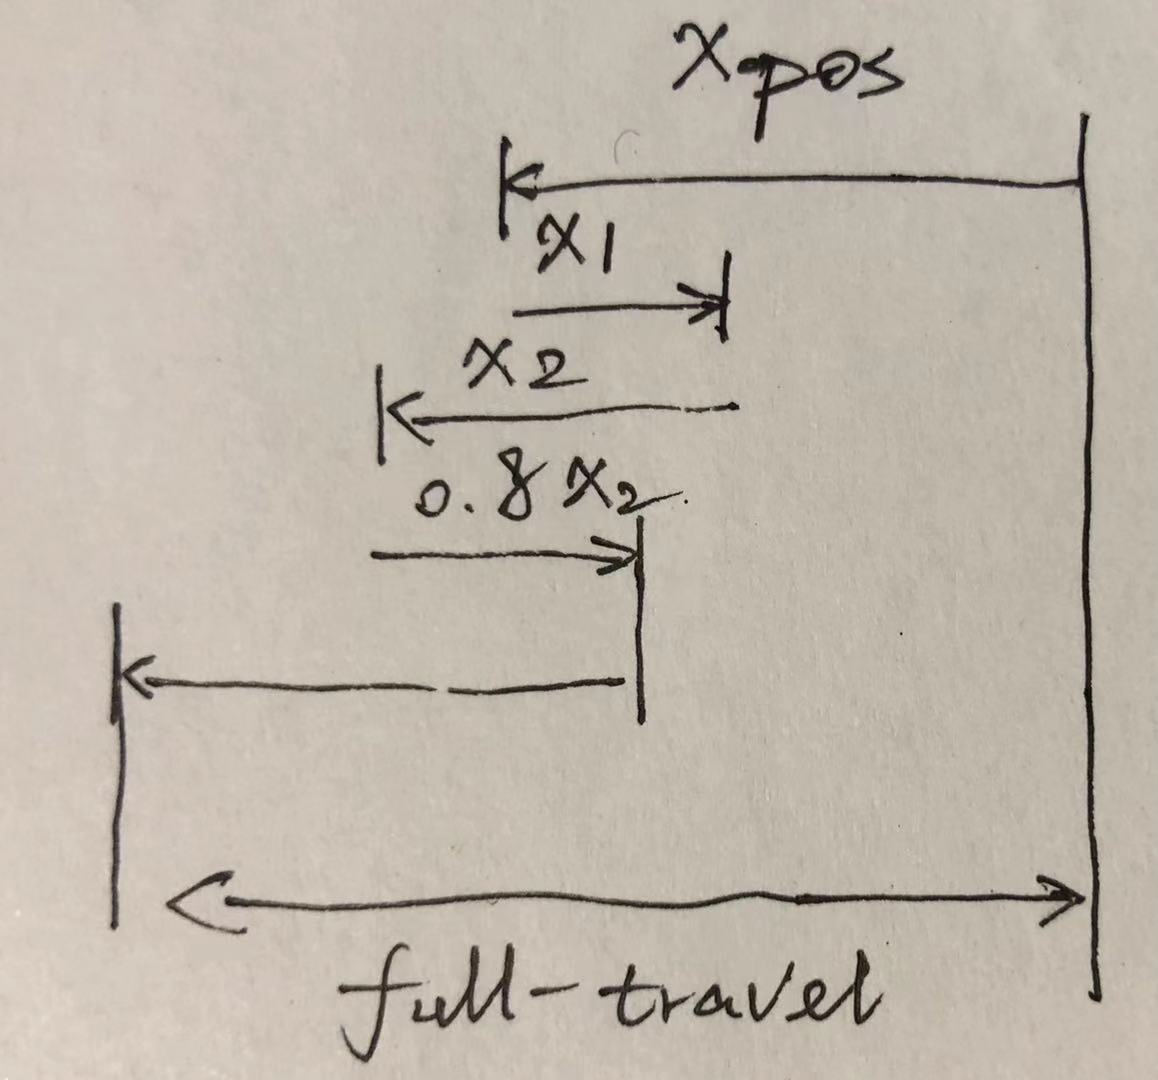 xpos
x1
x2
0.8 x2
full-travel